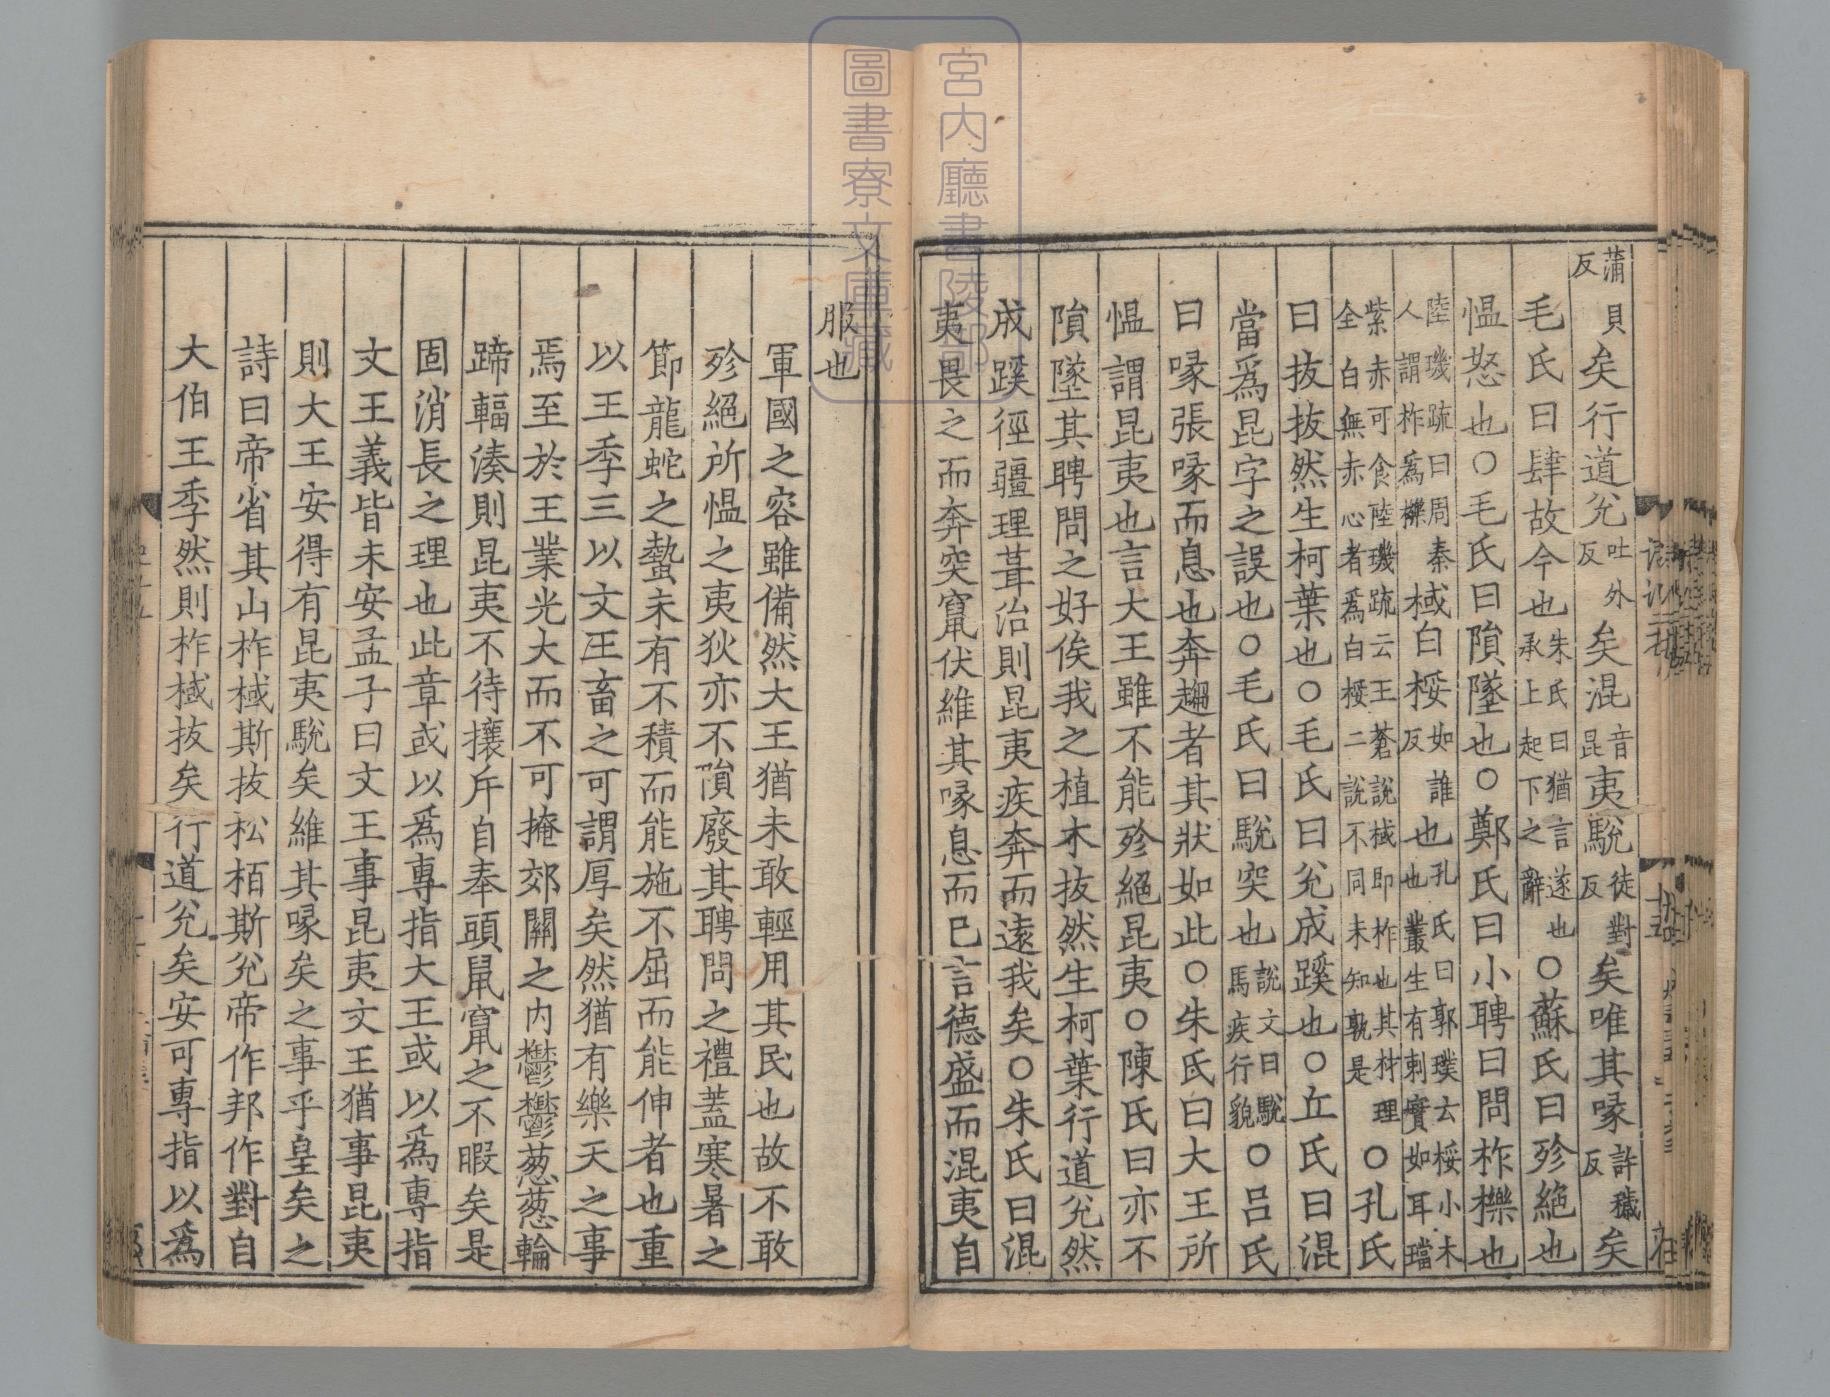 蒲貝反矣行道兊吐外反矣混音昆夷駾徒對反矣唯其喙許穢反矣
毛氏曰肆故今也朱氏曰猶言遂也承上起下之辭○蘇氏曰殄絶也
愠怒也○毛氏曰隕墜也○鄭氏曰小聘曰問柞櫟也
陸璣疏曰周秦人謂柞爲櫟棫白桵如誰反也孔氏曰郭璞云桵小木也叢生有刺實如耳璫
紫赤可食陸璣疏云王蒼說棫即柞也其材理全白無赤心者爲白桵二說不同未知孰是○孔氏
曰拔拔然生柯葉也○毛氏曰兊成蹊也○丘氏曰混
當爲昆字之誤也○毛氏曰駾突也說文曰駾馬疾行貌○呂氏
曰喙張喙而息也奔趨者其狀如此○朱氏曰大王所
愠謂昆夷也言大王雖不能殄絕昆夷○陳氏曰亦不
隕墜其聘問之好俟我之植木拔然生柯葉行道兊然
成蹊徑疆理葺治則昆夷疾奔而遠我矣○朱氏曰混
夷畏之而奔突竄伏維其喙息而已言德盛而混夷自
服也
軍國之容雖備然大王猶未敢輕用其民也故不敢
殄絕所愠之夷狄亦不隕廢其聘問之禮蓋寒暑之
節龍蛇之蟄未有不積而能施不屈而能伸者也重
以王季三以文王畜之可謂厚矣然猶有樂天之事
焉至於王業光大而不可掩郊關之內鬱鬱葱葱輪
蹄輻湊則昆夷不待攘斥自奉頭鼠竄之不暇矣是
固消長之理也此章或以爲專指大王或以爲專指
文王義皆未安孟子曰文王事昆夷文王猶事昆夷
則大王安得有昆夷駾矣維其喙矣之事乎皇矣之
詩曰帝省其山柞棫斯拔松栢斯兊帝作邦作對自
大伯王季然則柞棫拔矣行道兊矣安可專指以爲
宮内廳書陵部
圖書寮文庫藏